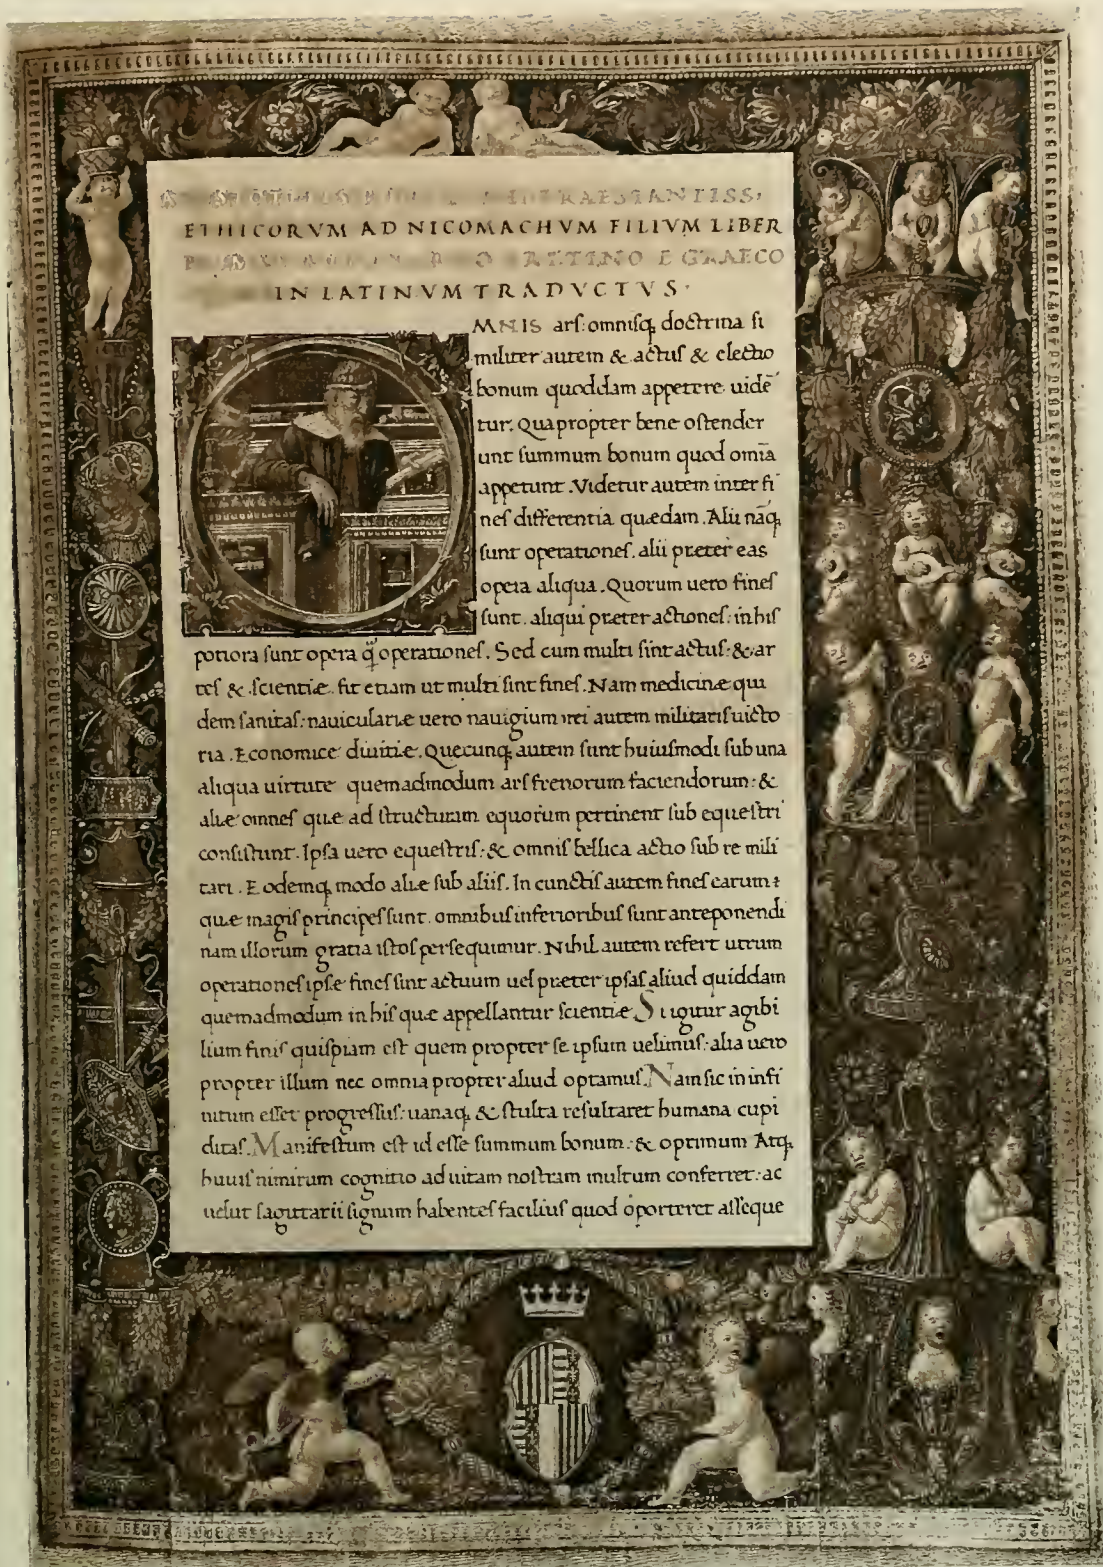 PRAESTANTISS·
ETHICORVM AD NICOMACHVM FILIVM LIBER
E GRAECO
IN LATINVM TRADVCTVS·
MNIS arſ: omniſq; doctrina ſi
militer autem & actuſ & electio
bonum quoddam appetere uidē
tur. Quapropter bene oſtender
unt ſummum bonum quod omīa
appetunt. Videtur autem inter fi
neſ differentia quædam. Alii nāq;
ſunt operationeſ. alii præter eas
opera aliqua. Quorum uero fineſ
ſunt. aliqui præter actioneſ: in hiſ
potiora ſunt opera q̄ operationeſ. Sed cum multi ſint actuſ: & ar
teſ & ſcientiæ. fit etiam ut multi ſint fineſ. Nam medicinæ qui
dem ſanitaſ: nauiculariæ uero nauigium rei autem militariſ uicto
ria. Economice diuitiæ. Quecunq; autem ſunt huiuſmodi ſub una
aliqua uirtute quemadmodum arſ frenorum faciendorum: &
aliæ omneſ quæ ad ſtructuram equorum pertinent ſub equeſtri
conſiſtunt. Ipſa uero equeſtriſ: & omniſ bellica actio ſub re mili
tari. Eodemq; modo aliæ ſub aliiſ. In cunctiſ autem fineſ earum:
quæ magiſ principeſ ſunt. omnibuſ inferioribuſ ſunt anteponendi
nam illorum gratia iſtoſ perſequimur. Nihil autem refert utrum
operationeſ ipſæ fineſ ſint actuum uel præter ipſaſ aliud quiddam
quemadmodum in hiſ quæ appellantur ſcientiæ Si igitur agibi
lium finiſ quiſpiam eſt quem propter ſe ipſum uelimuſ: alia uero
propter illum nec omnia propter aliud optamuſ. Nam ſic in infi
nitum eſſet progreſſuſ: uanaq; & ſtulta reſultaret humana cupi
ditaſ. Manifeſtum eſt id eſſe ſummum bonum: & optimum Atq;
huiuſ nimirum cognitio ad uitam noſtram multum conferret: ac
uelut ſagittarii ſignum habenteſ faciliuſ quod oporteret aſſeque